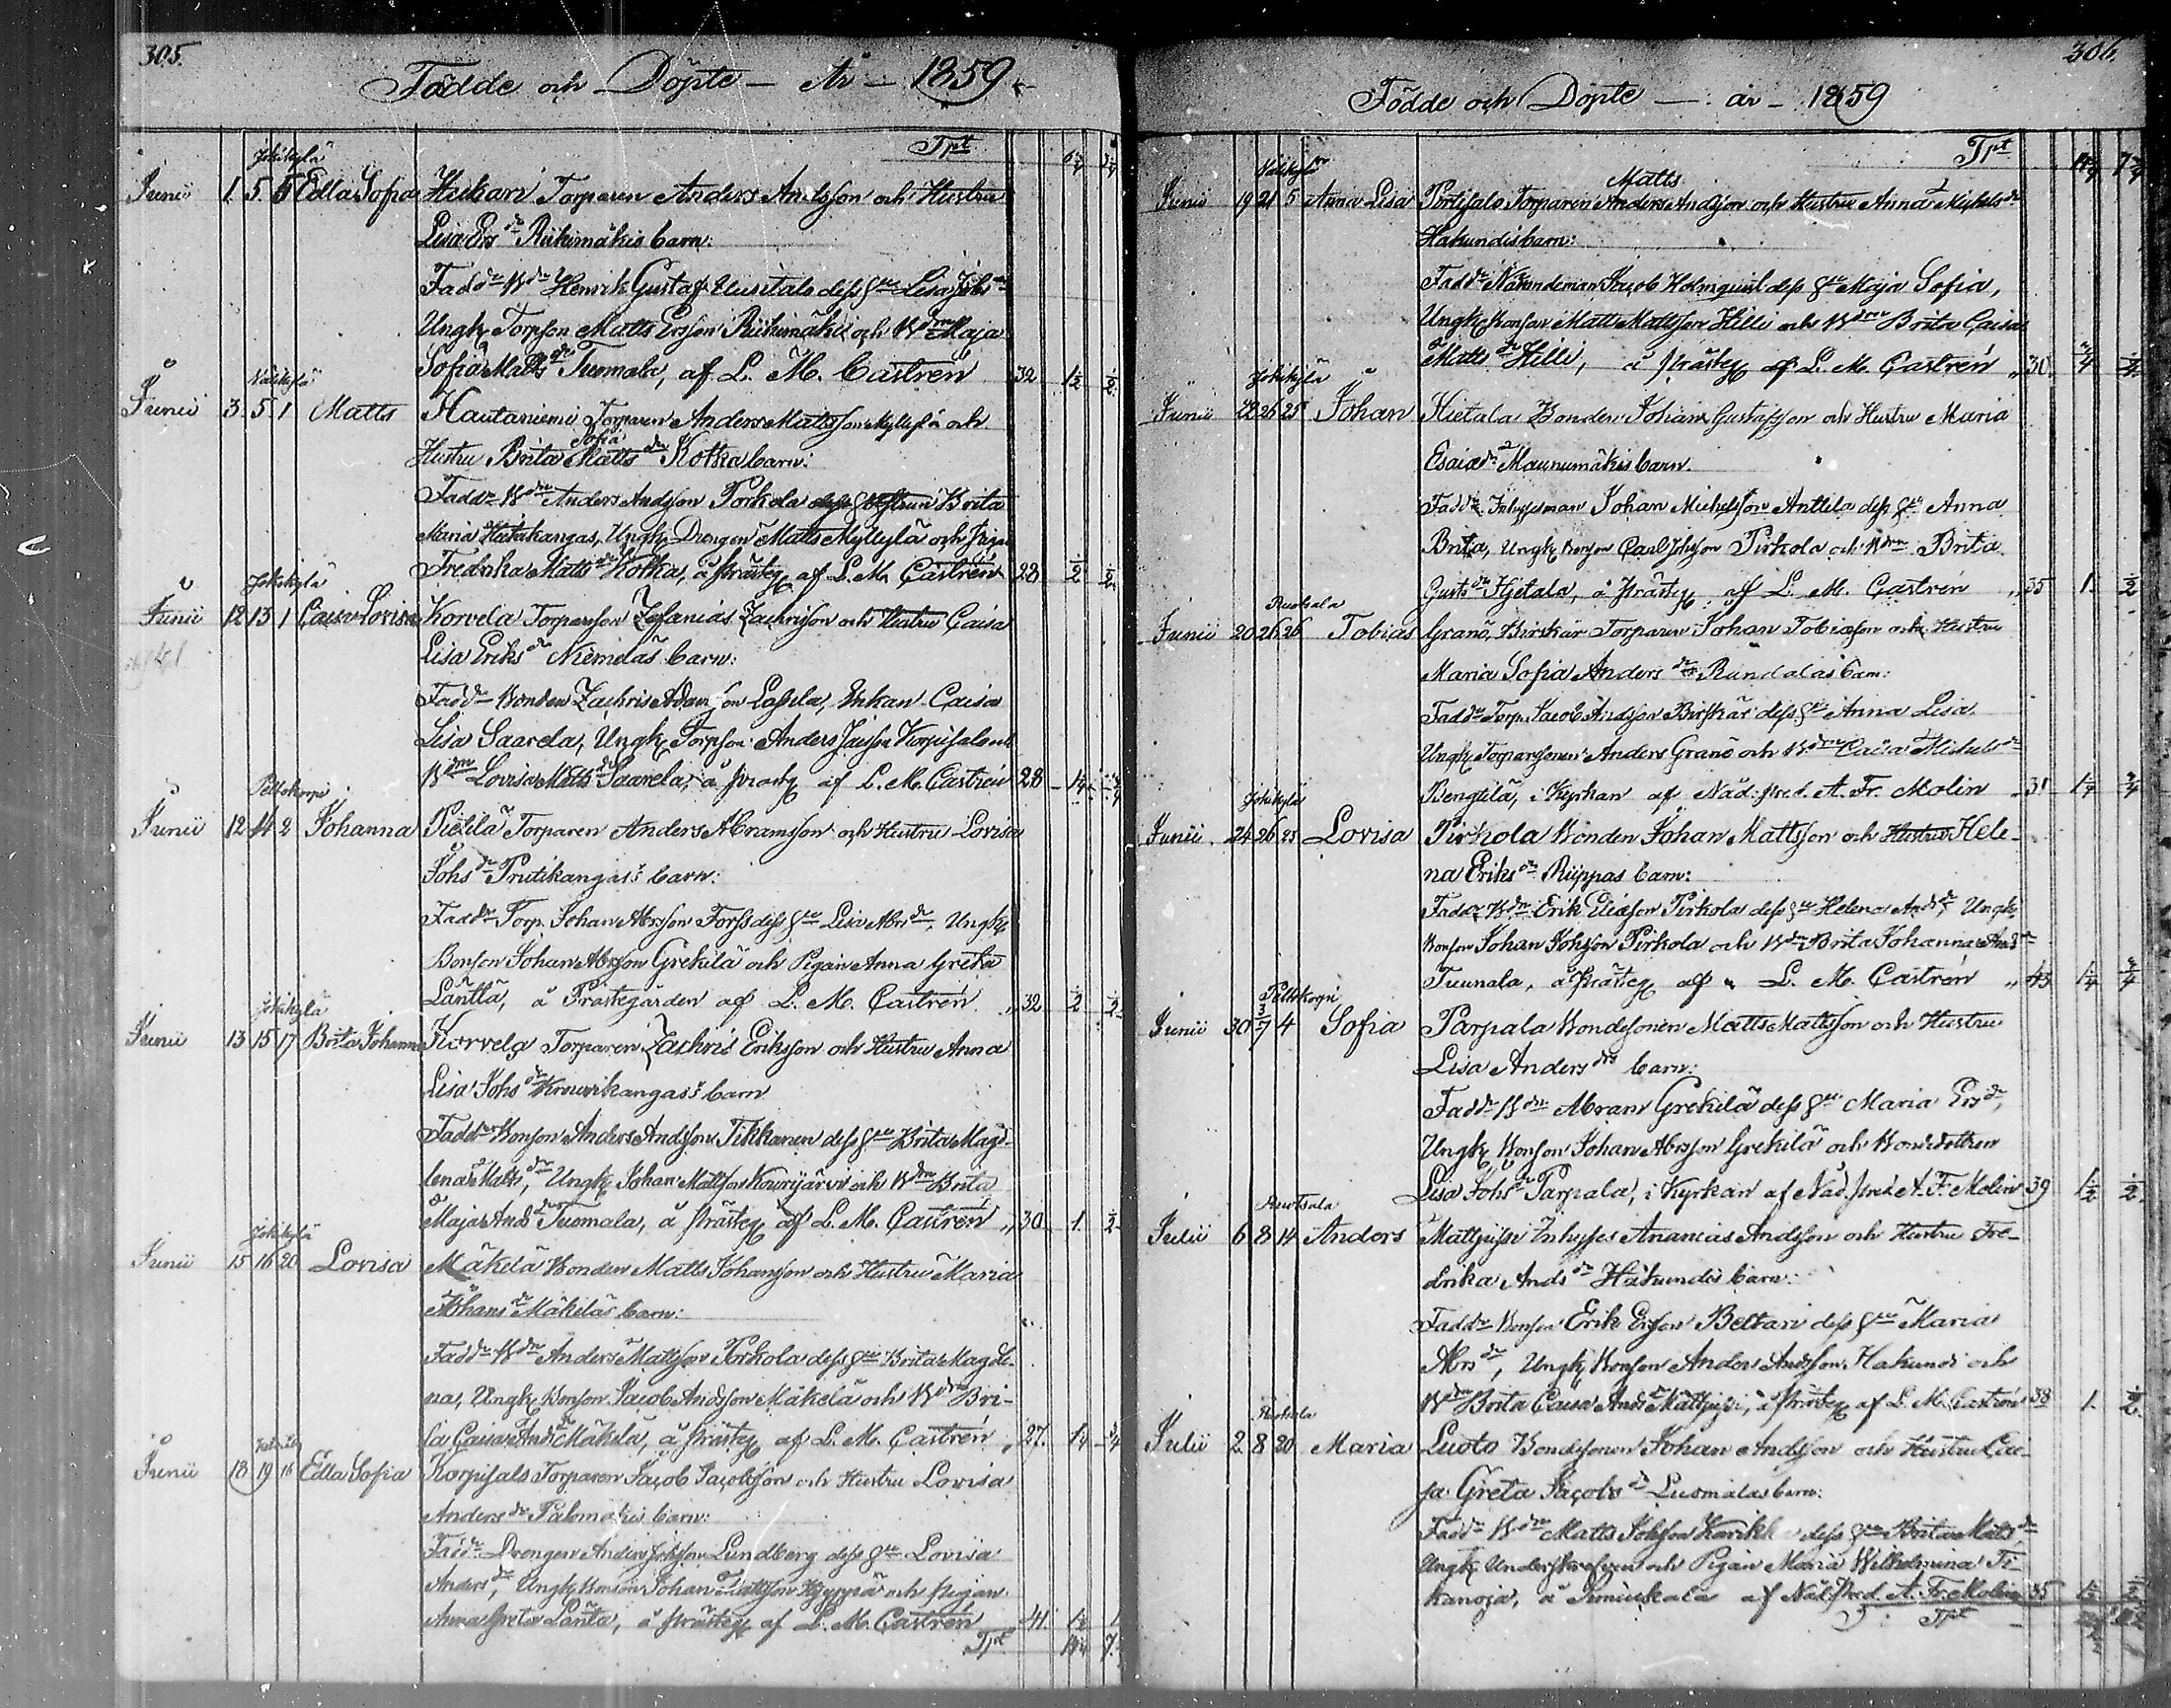 305.
Födde och Döpte — År — 1859
Tpt
Jokikylä
Junii 1. 5. 5 Edla Sofia Huikari Torparen Anders Andsson och Hustru
Lisa Ers dr Riihimäkis barn:
Fadd: Bdn Henrik Gustaf Uusitalo dess Hu Lisa Johs dr
Ungk Torpson Matts Ersson Riihimäki och Bdrn Maja
Sofia Matts dr Tuomala, af L. M. Castrén 32 1½ ½
Välikylä
Junii 3. 5. 1 Matts Hautaniemi Torparen Anders Mattsson Myllylä och
Hustru Brita Sofia Matts dr Kotka barn:
Fadd: Bdn Anders Andsson Pirkola Brita
Maria Ungk Drengen Matts Myllylä och Pigan
Fredrika Matts dr Kotka, å Prästeg af L. M. Castrén 28 ½ ½
Jokikylä
Junii 12 13 1 Caisa Lovisa Korvela Torparson Zefanias Zachrisson och Hustru Caisa
Lisa Eriks dr Niemeläs barn:
Fadd: Bonden Zachris Adamsson Lassila, Enkan Caisa
Lisa Saarela, Ungk Torpson Anders Jacsson Korpisalo och
Bdrn Lovisa Matts dr Saarela, å Prästeg af L. M. Castrén 28 1¼ ¾
Peltokorpi
Junii 12 14 2 Johanna Pietilä Torparen Anders Abramsson och Hustru Lovisa
Johs dr Prutikangas's barn:
Fadd: Torp. Johan Abrsson Forss dess Hu Lisa Abrs dr, Ungk
Bonson Johan Abrsson Grekilä och Pigan Anna Greta
Länttä, å Prästegården af L. M. Castrén. 32 ½ ½
Jokikylä
Junii 13 15 17 Brita Johanna Korvela Torparen Zachris Eriksson och Hustru Anna
Lisa Johs dr barn
Fadd: Bonson Anders Andsson Tikkanen dess Hu Brita Magd-
lena Matts dr, Ungk Johan Mattsson och Bdrn Brita
Maja Ands dr Tuomala, å Prästeg af L. M. Castrén 30 1. ½
Jokikylä
Junii 15 16 20 Lovisa Mäkelä Bonden Matts Johansson och Hustru Maria
Johans dr Mäkeläs barn:
Fadd: Bdn Anders Mattsson Pirkola dess Hu Brita Magdle-
na, Ungk Bonson Jacob Andsson Mäkelä och Bdrn Bri-
ta Caisa Ands dr Mäkelä, å Prästeg af L. M. Castrén 27. 1¼ ¾
Junii 18 19 16 Edla Sofia Korpisalo Torparen Jacob Jacobsson och Hustru Lovisa
Anders dr Palomäkis barn:
Fadd: Drengen Anders Johsson Lundberg dess Hu Lovisa
Anders dr, Ungk Bonson Johan Mattsson Hyyppä och Pigan
Anna Greta Lanta, å Prästeg af L. M. Castrén 41. 1½ 1
Tpt
306.
Födde och Döpte — år — 1859
Tpt
Välikylä
Junii 19 21 5 Anna Lisa Portisalo Torparen Matts Andsson och Hustru Anna Michels dr
Hakundis barn:
Fadd: Nämndeman Jacob Holmquist dess Hu Maja Sofia,
Ungk Bonson Matts Mattsson Hilli och Bdrn Brita Caisa
Matts dr Hilli, å Prästeg af L. M. Castrén 30.
Jokikylä
Junii 22 26 25 Johan Hietala Bonden Johan Gustafsson och Hustru Maria
Esaiæ dr Maunumäkis barn.
Fadd: Inhysesman Johan Michelsson Anttila dess Hu Anna
Brita, Ungk Bonson Carl Johsson Pirkola och Bdrn Brita
Gusts dr Hjetala, å Prästeg af L. M. Castrén 35 1. ½
Ruotsala
Junii 20 26 26 Tobias Granö, Birskär Torparen Johan Tobiasson och Hustru
Maria Sofia Anders dr Rundalas barn:
Fadd: Torp. Jacob Andsson Birskär dess Hu Anna Lisa
Ungk Torparsonen Anders Granö och Bdrn Caisa Michels dr
Bengtilä, i Kyrkan af Näd: Pred. A. Fr. Molin 31 1¼ ¾
Jokikylä
Junii 24 26 23 Lovisa Pirkola Bonden Johan Mattsson och Hustru Hele-
na Eriks dr Riippas barn:
Fadd: Bdn Erik Eliasson Pirkola dess Hu Helena Ands dr, Ungk
Bonson Johan Johsson Pirkola och Bdrn Brita Johanna Ands dr
Tuunala, å Prästeg af L. M. Castrén 43 1¼ ¾
Peltokorpi
Junii 30 3/7 4 Sofia Parpala Bondesonen Matts Mattsson och Hustru
Lisa Anders drs barn:
Fadd: Bdn Abram Grekilä dess Hu Maria Ers dr,
Ungk Bonson Johan Abrsson Grekilä och Bondedottren
Lisa Johs dr Parpala, i Kyrkan af Näd. Pred A. F. Molin 39 1½ ½
Ruotsala
Julii 6 8 14 Anders Mattjussi Inhyses Ananias Andsson och Hustru Fre-
drika Ands dr Hakundis barn:
Fadd: Bonson Erik Ersson Beltari dess Hu Maria
Abrs dr, Ungk Bonson Anders Andsson Hakundi och
Bdrn Brita Caisa Ands dr Mattjussi, å Prästeg af L. M. Castrén 38 1. ½
Ruotsala
Julii 2 8 20 Maria Luoto Bondesonen Johan Andsson och Hustru Cai-
sa Greta Jacobs dr Luomalas barn:
Fadd: Bdn Matts Johsson Karikka dess Hu Brita Matts dr
Ungk Underskrefven och Pigan Maria Wilhelmina Ti-
kanoja, å af Näd. Pred. A. Fr. Molin 35
Tpt